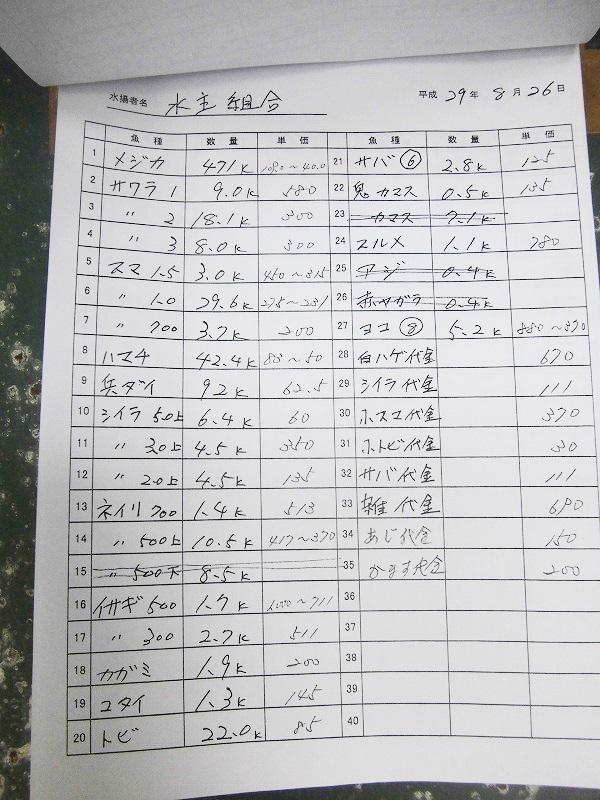 水揚者名 水主組合 平成 29年 8月 26日
魚種 数量 単価 魚種 数量 単価
1 メジカ 471K 1080~400
2 サワラ 1 9.0K 580
3 〃 2 18.1K 300
4 〃 3 8.0K 300
5 スマ 1.5 3.0K 450~315
6 〃 1.0 29.6K 275~231
7 〃 700 3.7K 200
8 ハマチ 42.4K 80~50
9 兵ダイ 92K 62.5
10 シイラ 50上 6.4K 60
11 〃 3.0上 4.5K 350
12 〃 2.0上 4.5K 135
13 ネイリ 700 1.4K 513
14 〃 500上 10.5K 417~370
15 〃 500下 8.5K
16 イサギ 500 1.7K 1,000~711
17 〃 300 2.7K 511
18 カガミ 1.9K 200
19 コタイ 1.3K 145
20 トビ 22.0K 85
21 サバ ⑥ 2.8K 125
22 鬼カマス 0.5K 135
23 カマス 7.1K
24 スルメ 1.1K 780
25 アジ 0.4K
26 赤ヤガラ 0.4K
27 ヨコ ⑧ 5.2K 880~370
28 白ハゲ代金 670
29 シイラ代金 111
30 ホスマ代金 370
31 ホトビ代金 30
32 サバ代金 111
33 雑代金 690
34 あじ代金 150
35 かます代金 200
36
37
38
39
40